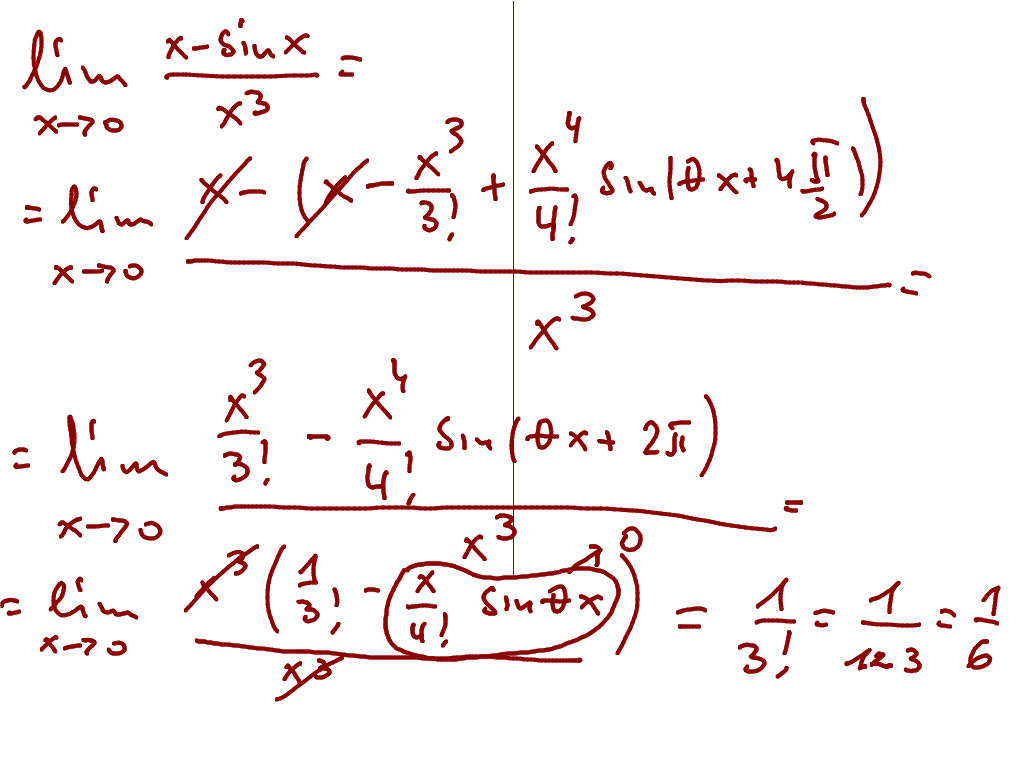 lim x→0 (x - sin x)/x³ =
= lim x→0 (x - (x - x³/3! + x⁴/4! sin(θx + 4 π/2)))/x³ =
= lim x→0 (x³/3! - x⁴/4! sin(θx + 2π))/x³ =
= lim x→0 x³(1/3! - x/4! sin θx → 0)/x³ = 1/3! = 1/123 = 1/6